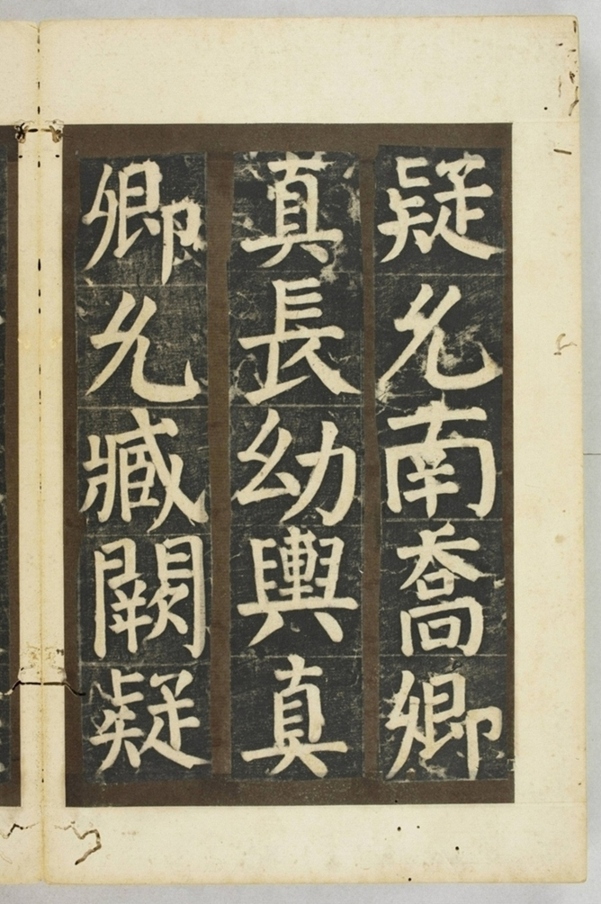 疑允南喬卿
真長幼輿真
卿允臧闕疑